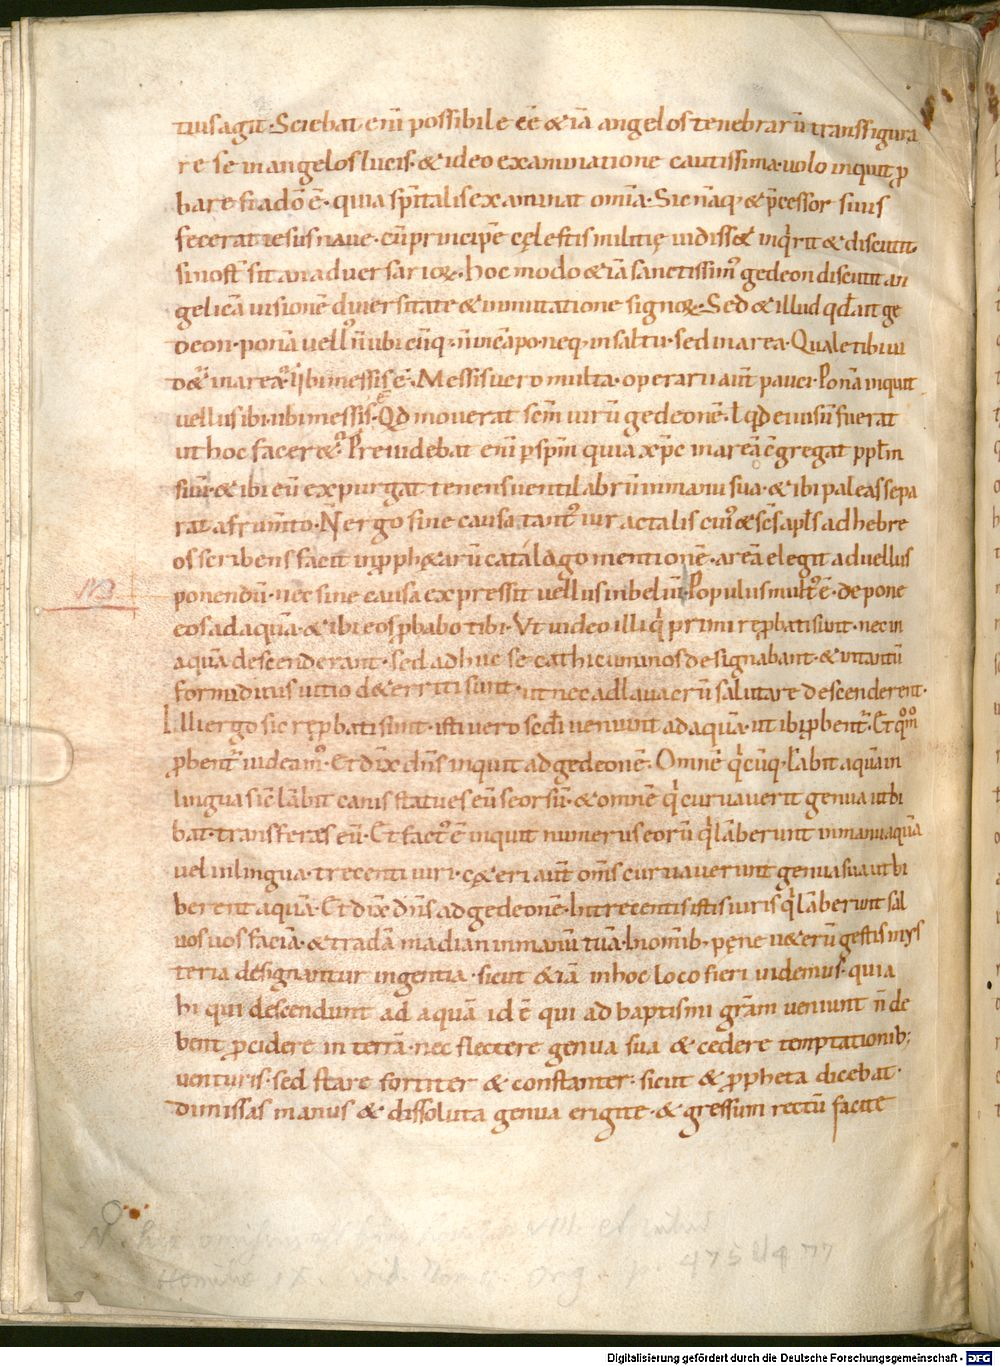 tius agit. Sciebat eni̅ possibile e̅e̅ & ia̅ angelos tenebraru̅ transfigura
re se in angelos lucis. & ideo examinatione cautissima. uolo inquit ꝓ
bare si a do̅ e̅. quia sp̅italis examinat om̅ia. Sic na̅q; & p̅cessor suus
fecerat iesus naue. cu̅ principe̅ cęlestis militię uidiss&. inq̇rit & discutit.
si nost̅ sit an aduersarioꝝ. hoc modo & ia̅ sanctissim᷒ gedeon discutit an
gelica̅ uisione̅ diuersitate & inmutatione signoꝝ. Sed & illud qd̅ ait ge
deon. pona̅ uell᷒
do&᷒ in area᷒ ibi messis e̅. Messis uero multa. operarii aut̅ pauci. Pona̅ inquit
uellus ibi ubi messis. Qd̅ mouerat sc̅m uiru̅ gedeone̅. ł qd̅ ei uisu̅ fuerat
ut hoc facer&᷒. Preuidebat eni̅ p sp̅m quia xp̅c in area̅ c̅gregat ppl̅m
suu̅. & ibi eu̅ expurgat tenens uentilabru̅ in manu sua. & ibi paleas sepa
rat a frum̅to. N̅ ergo sine causa tant᷒ uir ac talis cui᷒ & sc̅s apl̅s ad hebre
os scribens facit in ꝓph&aru̅ catalago mentione̅. area̅ elegit ad uellus
ponendu̅. nec sine causa expressit uellus in pelui̅. Populus mult᷒ e̅. depone
eos ad aqua̅. & ibi eos ꝓbabo tibi. Ut uideo illi q̇ primi reꝓbati sunt. nec in
aqua̅ descenderant. sed adhuc se cathicuminos designabant. & uitantu̅
formiditus uitio det&rriti sunt. ut nec ad lauacru̅ salutare descenderent.
Illi ergo sic reꝓbati sunt. isti uero secd̅i ueniunt ad aqua̅. ut ibi ꝓbent᷒. Et qm̅o
ꝓbent᷒ uideam᷒. Et dix̅ dn̅s inquit ad gedeone̅. Omne̅ q̇cu̅q; la̅bit aqua̅ in
lingua sic̅ la̅bit canis statues eu̅ seorsu̅. & omne̅ q̇ curuauerit genua ut bi
bat. transferas eu̅. Et fact᷒ e̅ inquit numerus eoru̅ q̇ la̅berunt in manu aqua̅
uel in lingua. trecenti uiri. c&eri aut̅ om̅s curuauerunt genua sua ut bi
berent aqua̅. Et dix̅ dn̅s ad gedeone̅. In trecentis istis uiris q̇ la̅berunt sal
uos uos facia̅. & trada̅ madian in manu̅ tua̅. In omnib; pęne u&eru̅ gestis mys
teria designantur ingentia. sicut & ia̅ in hoc loco fieri uidemus. quia
hi qui descendunt ad aqua̅ id e̅ qui ad baptismi gra̅m ueniunt n̅ de
bent ꝓcidere in terra̅. nec flectere genua sua & cedere temptationib;
uenturis. sed stare fortiter & constanter. sicut & ꝓpheta dicebat.
dimissas manus & dissoluta genua erigite. & gressum rectu̅ facite
NB
Homilie IX. p. 475 477
Digitalisierung gefördert durch die Deutsche Forschungsgemeinschaft - DFG